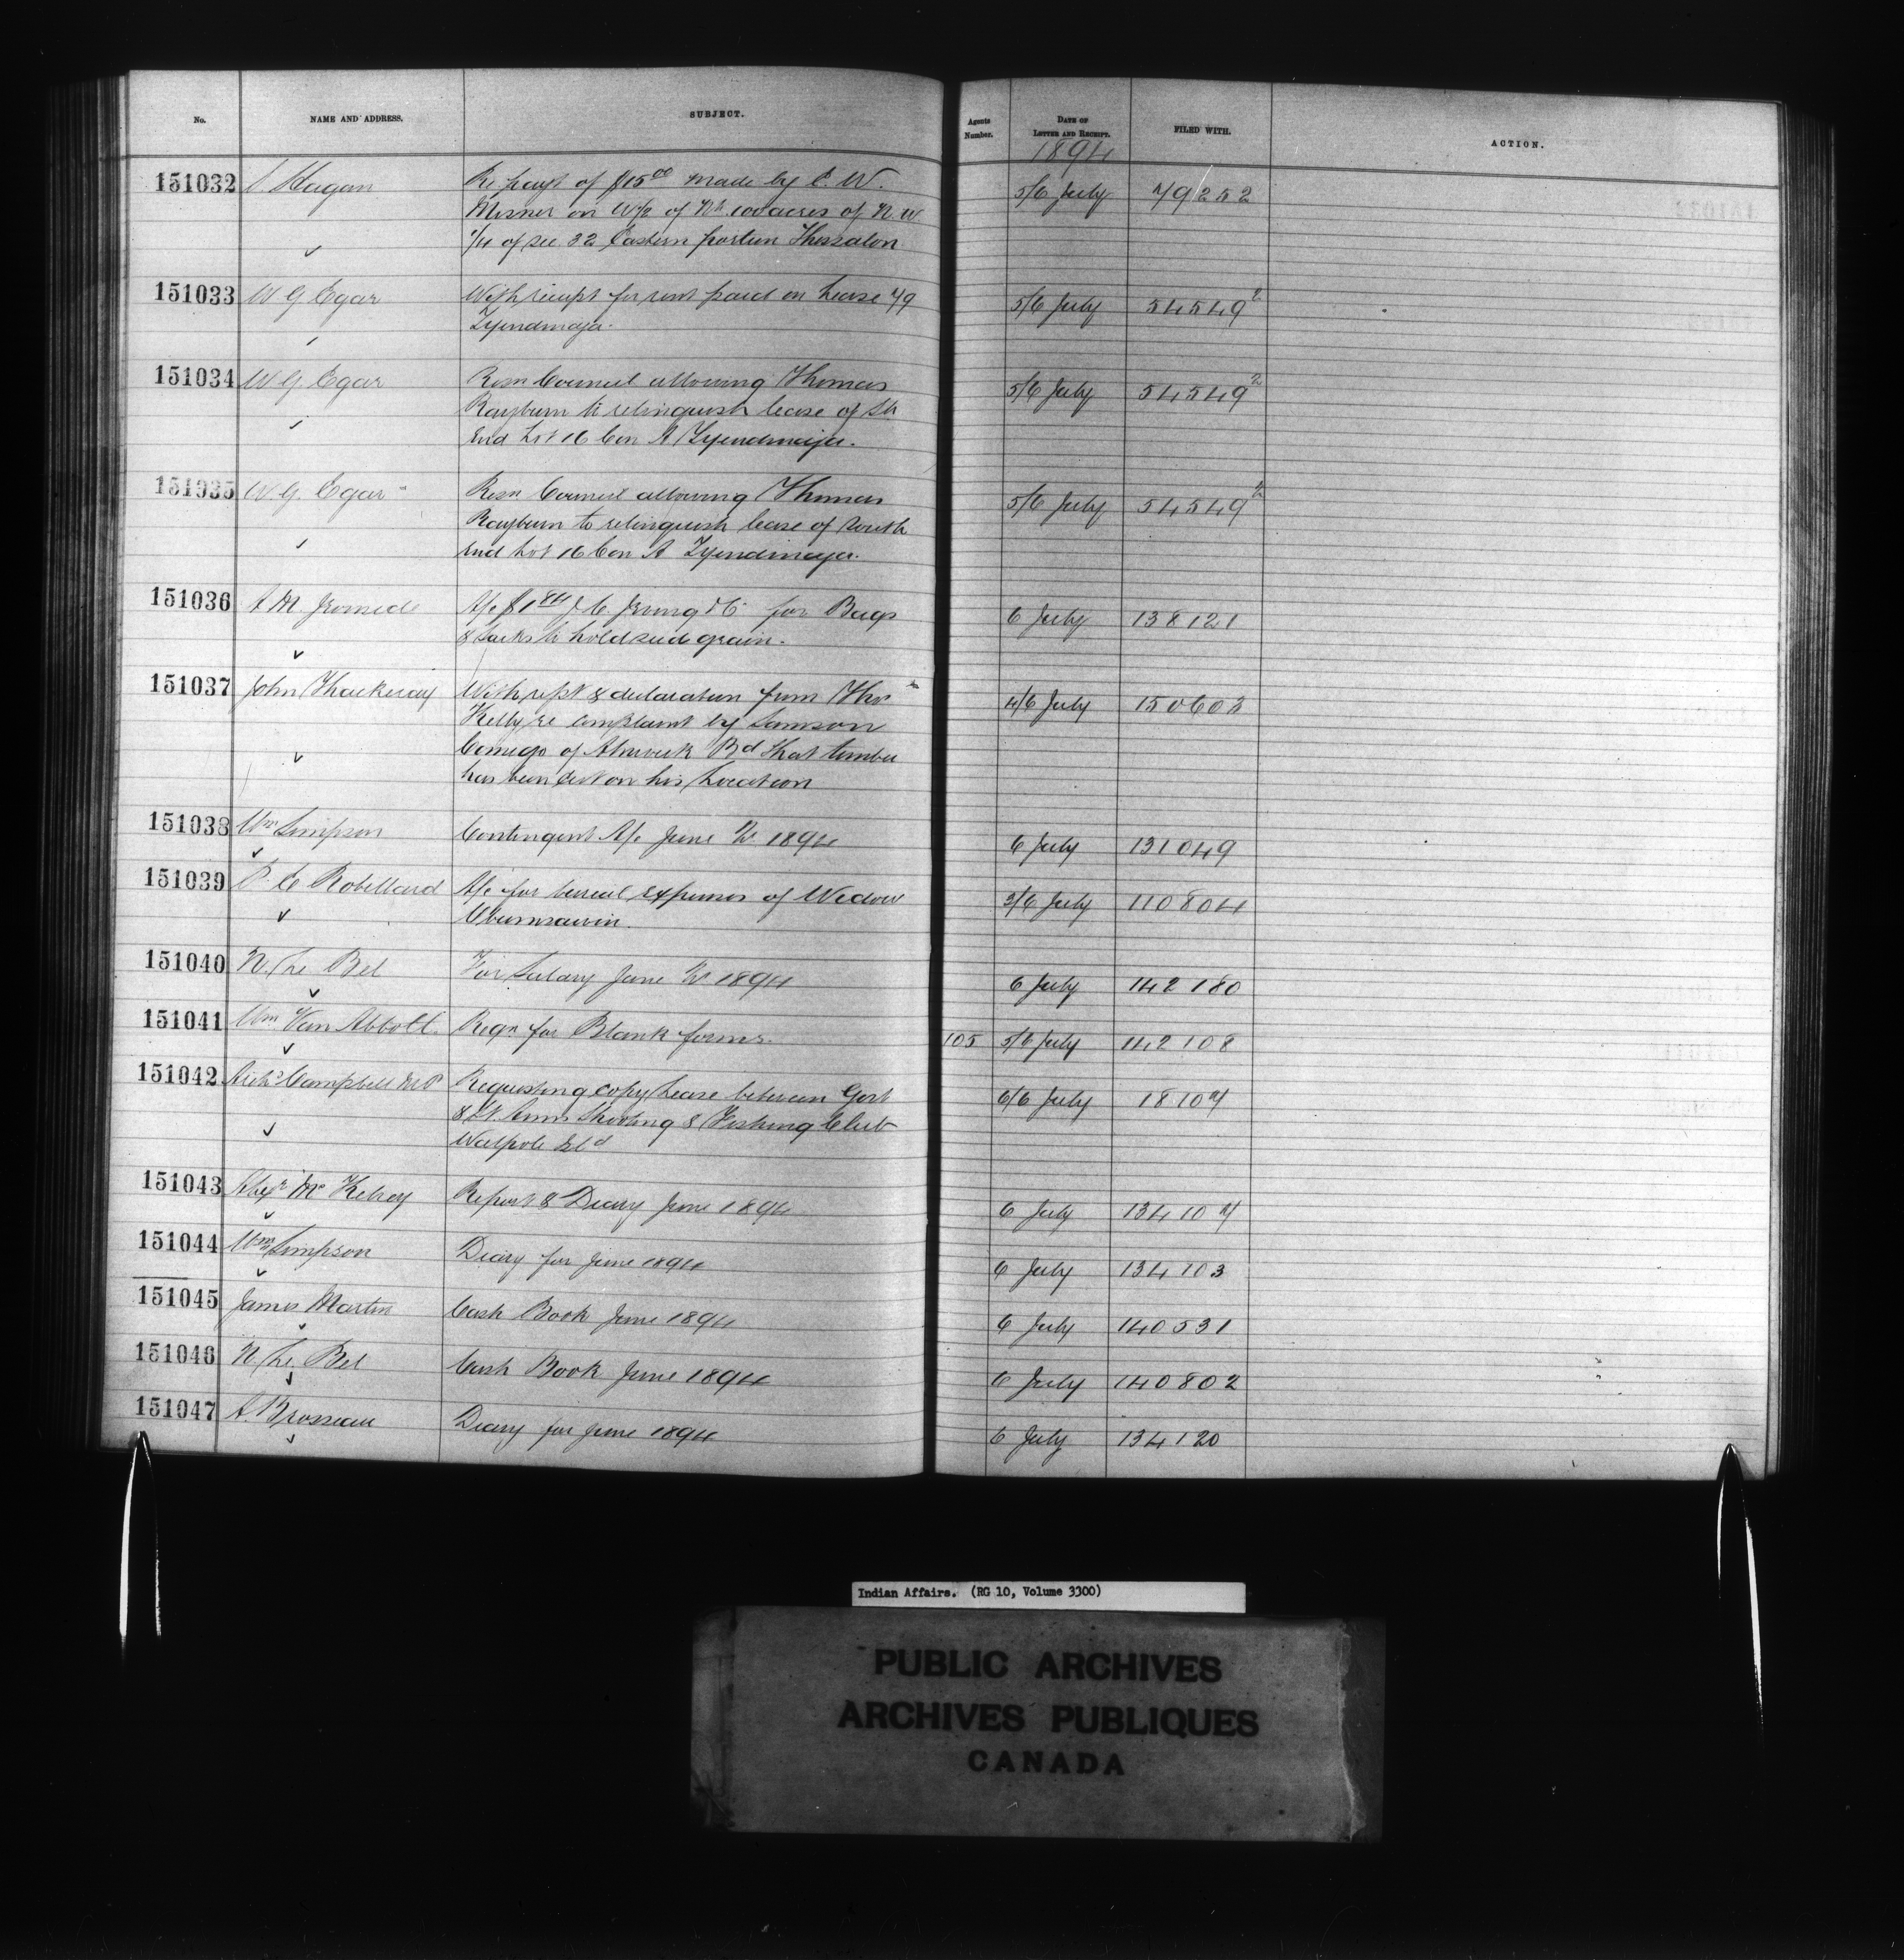 No. NAME AND ADDRESS. SUBJECT. Agents Number. DATE OF LETTER AND RECEIPT. FILED WITH. ACTION.
1894
151032 S Hagan Re payt of $15.00 made by C. W. 5/6 July 79252
Misner on W½ of Nh. 100 acres of N.W
1/4 of sec. 32 Eastern portion Thessalon
151033 W G Egar With receipt for rent paid on Lease 79 5/6 July 54549²
Tyendinaga.
151034 W. G. Egar Resn Council allowing Thomas 5/6 July 54549²
Rayburn to relinquish lease of Sh
End Lot 16 Con A Tyendinaga.
151035 W. G. Egar Resn Council allowing Thomas 5/6 July 54549²
Rayburn to relinquish lease of South
End Lot 16 Con A Tyendinaga.
151036 A M. A/c $1 for Bags 6 July 138121
& Sacks to hold seed grain.
151037 John Thackeray With rept & declaration from Thos 4/6 July 150603
Kelly re complaint by Samson
Comego of Alnwick Bd that timber
has been cut on his Location
151038 Wm Simpson Contingent A/c June Qr. 1894 6 July 131049
151039 P. C Robillard A/c for burial expenses of Widow 3/6 July 110804
151040 N. Le Bel For Salary June Qr 1894 6 July 142180
151041 Wm Van Abbott Reqn for Blank forms. 105 5/6 July 142108
151042 Archd Campbell M.P Requesting copy Lease between Govt 6/6 July 18107
& St. Anns Shooting & Fishing Club
Walpole Isld
151043 Alexr Mc Kelvey Report & Diary June 1894 6 July 134107
151044 Wm Simpson Diary for June 1894 6 July 134103
151045 James Martin Cash Book June 1894 6 July 140531
151046 N. Le Bel Cash Book June 1894 6 July 140802
151047 A. Brosseau Diary for June 1894 6 July 134120
Indian Affairs. (RG 10, Volume 3300)
PUBLIC ARCHIVES
ARCHIVES PUBLIQUES
CANADA